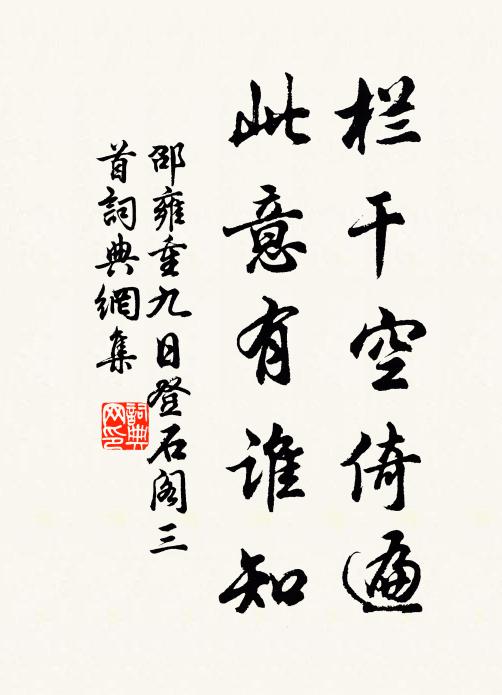 栏干空倚遍
此意有谁知
邵雍重九日登石阁三
首詞典網集
詞典网印